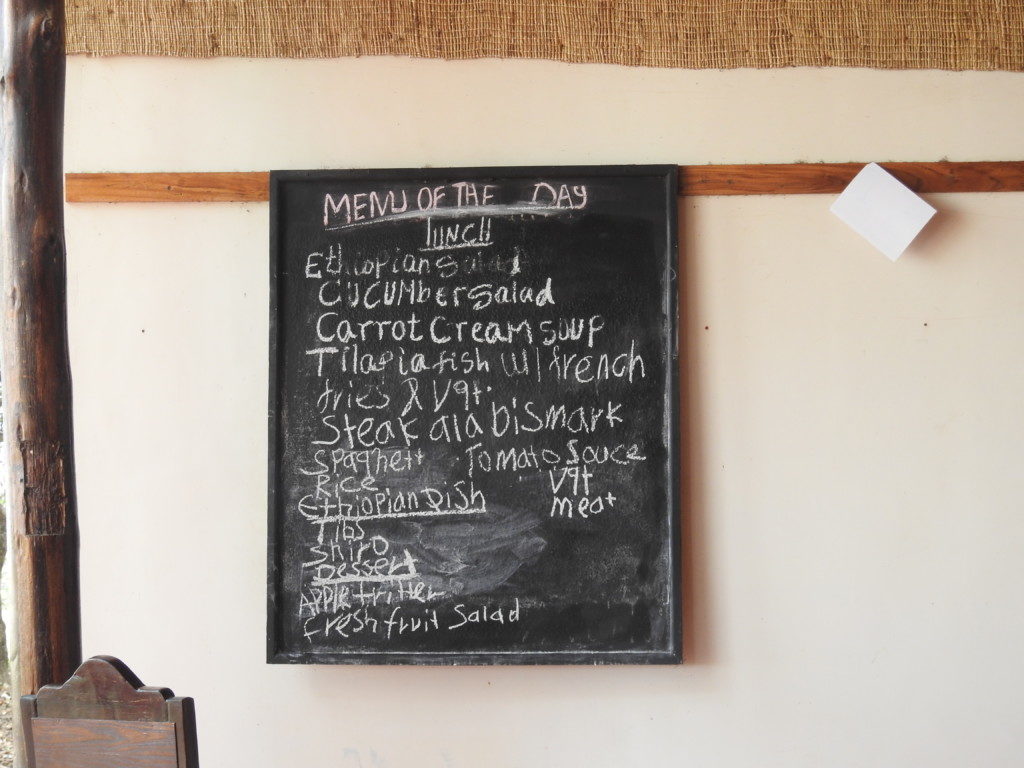 MENU OF THE DAY
LUNCH
Ethiopian Salad
CUCUMber Salad
Carrot Cream soup
Tilapia fish w/ french
fries & Vgt.
Steak ala bismark
Spaghett Tomato Souce
Rice Vgt
meat
Ethiopian Dish
Tibs
Shiro
Dessert
Apple fritter
fresh fruit Salad